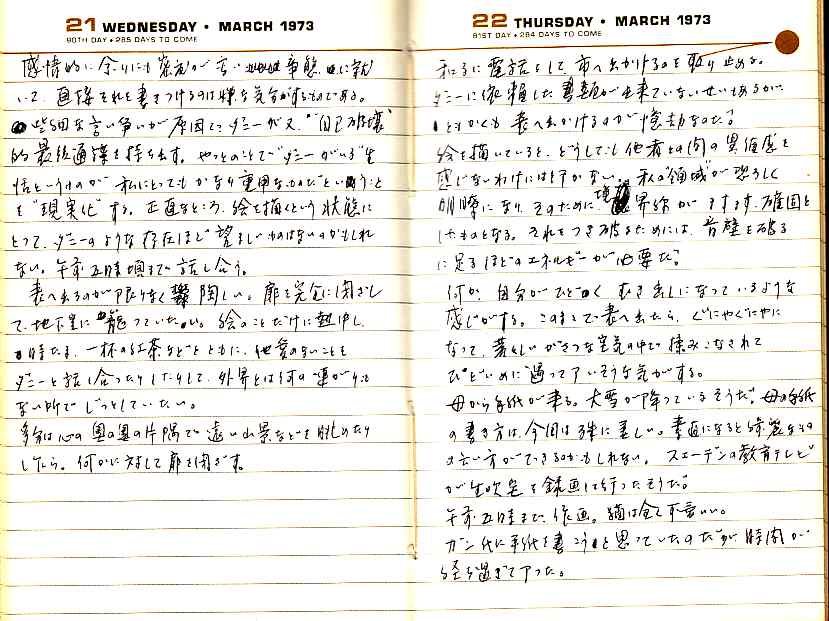 21 WEDNESDAY • MARCH 1973
80TH DAY • 285 DAYS TO COME
感情的に余りにも密度が高い事態に就
いて、直接それを書きつけるのは嫌な気分がするものである。
些細な言い争いが原因で、ダニーが又、“自己破壊”
的最後通牒を持ち出す。やっとのことで“ダニーがいる”生
活というものが、私にとってもかなり重要なものだということ
を“現実化”する。正直なところ、絵を描くという状態に
とって、ダニーのような存在ほど望ましいものはないのかもしれ
ない。午前五時頃まで話し合う。
表へ出るのが限りなく鬱陶しい。扉を完全に閉ざし
て、地下室に籠っていたい。絵のことだけに熱中し、
時たま、一杯の紅茶などとともに、他愛のないことを
ダニーと話し合ったりしたりして、外界とは何の連がりも
ない所でじっとしていたい。
多分は心の奥の奥の片隅で遠い山景などを眺めたり
しながら。何かに対して扉を閉ざす。
22 THURSDAY • MARCH 1973
81ST DAY • 284 DAYS TO COME
和子に電話をして、市へ出かけるのを取り止める。
ダニーに依頼した書類が出来ていないせいもあるが、
ともかくも表へ出かけるのが億劫なのだ。
絵を描いていると、どうしても他者との間の異和感を
感じないわけには行かない。私の“領域”が恐ろしく
明瞭になり、そのために、境界線がますます確固と
したものとなる。それをつき破るためには、音壁を破る
に足るほどのエネルギーが必要だ。
何か、自分がひどくむき出しになっているような
感じがする。このままで表へ出たら、ぐにゃぐにゃに
なって、荒々しいがさつな空気の中で揉みこなされて
ひどいめに遇ってしまいそうな気がする。
母から手紙が来る。大雪が降っているそうだ。母の手紙
の書き方は、今回は殊に美しい。素直になると綺麗なもの
の云い方ができるのかもしれない。スエーデンの教育テレビ
が生吹足を録画に行ったそうだ。
午前五時まで、作画。猫は全く可愛い。
ガン代に手紙を書こうと思っていたのだが時間が
経ち過ぎてしまった。